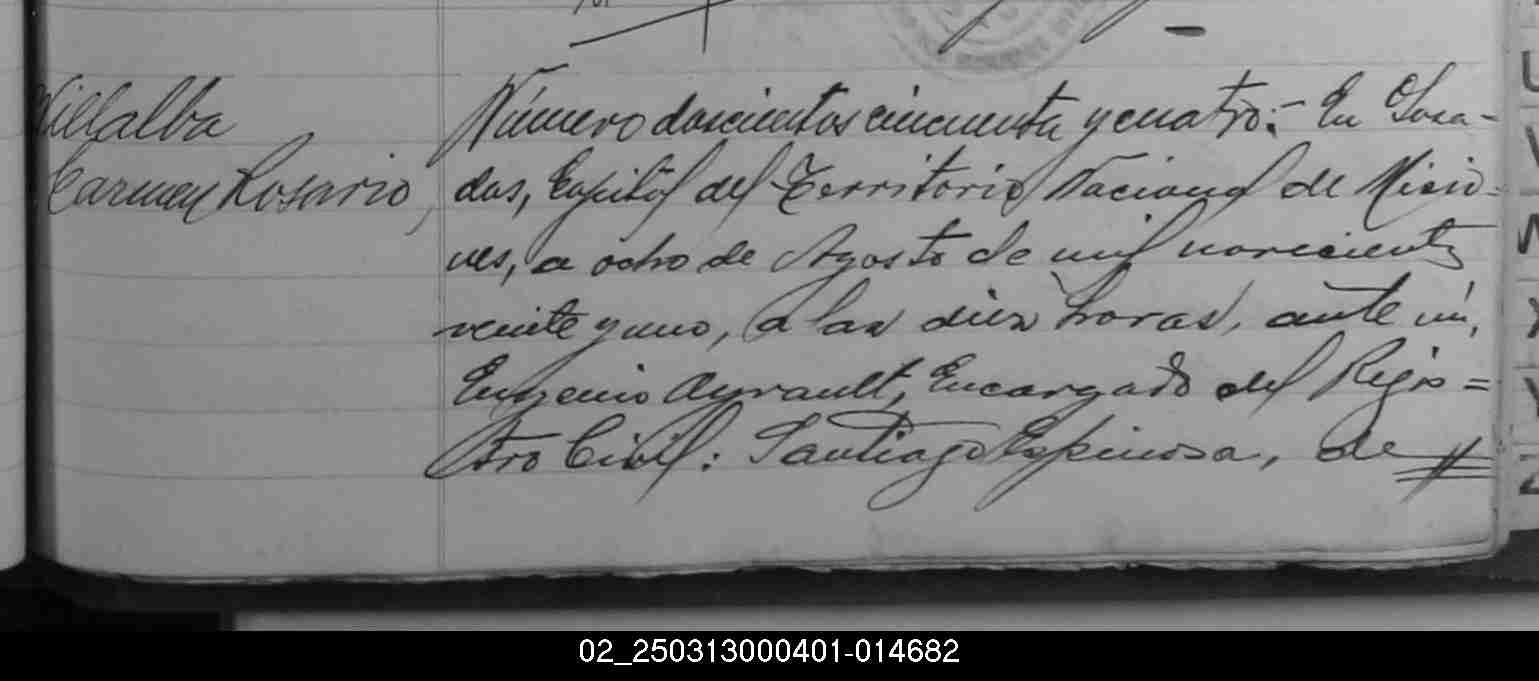 Villalba
Carmen Rosario,
Número doscientos cincuenta y cuatro:- En Posa-
das, Capital del Territorio Nacional de Misio-
nes, a ocho de Agosto de mil novecientos
veinte y uno, a las diez horas, ante mí,
Eugenio Ayrault, Encargado del Regis=
tro Civil: Santiago Espinosa, de
02_250313000401-014682